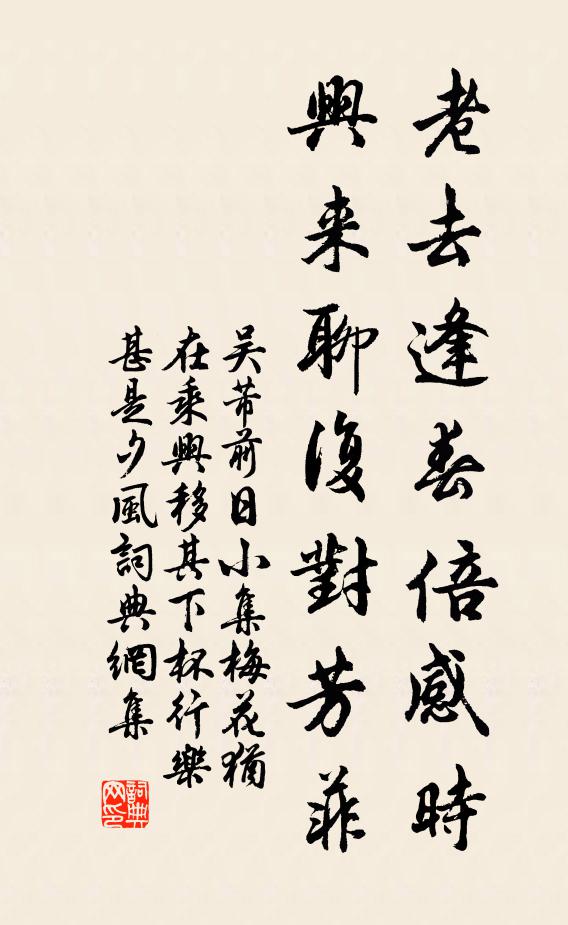 老去逢春倍感時
興來聊復對芳菲
吴芾前日小集梅花猶
在乘興移其下杯行樂
甚是夕風詞典網集
詞典网印